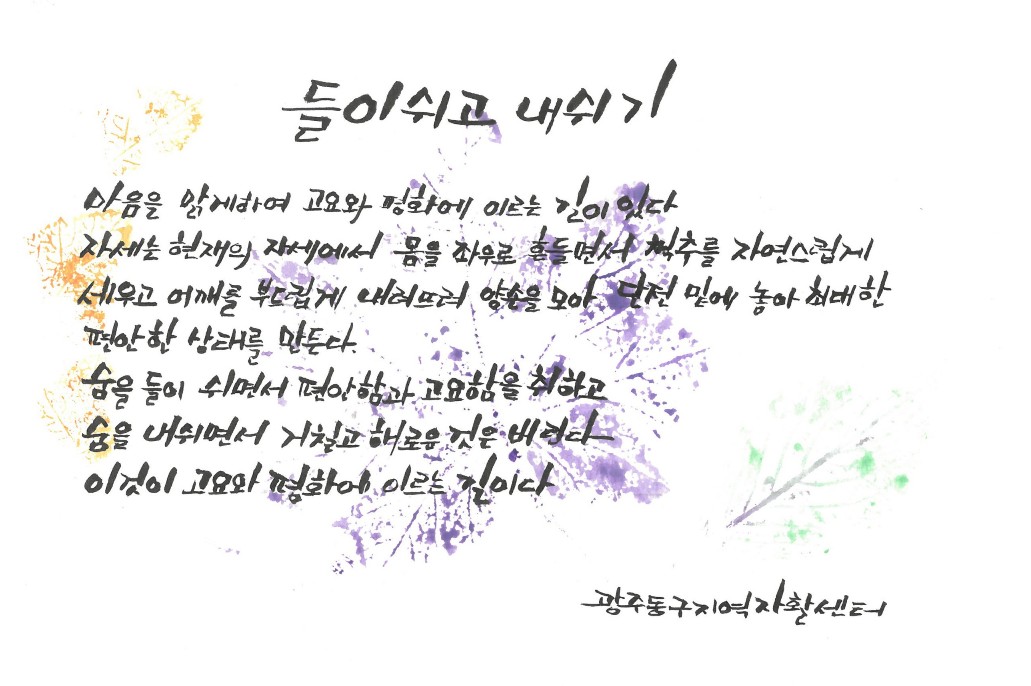 들이쉬고 내쉬기
마음을 맑게하여 고요와 평화에 이르는 길이 있다
자세는 현재의 자세에서 몸을 좌우로 흔들면서 척추를 자연스럽게
세우고 어깨를 부드럽게 내려뜨려 양손을 모아 단전 밑에 놓아 최대한
편안한 상태를 만든다.
숨을 들이 쉬면서 편안함과 고요함을 취하고
숨을 내쉬면서 거칠고 해로운 것은 버린다
이것이 고요와 평화에 이르는 길이다
광주동구지역자활센터